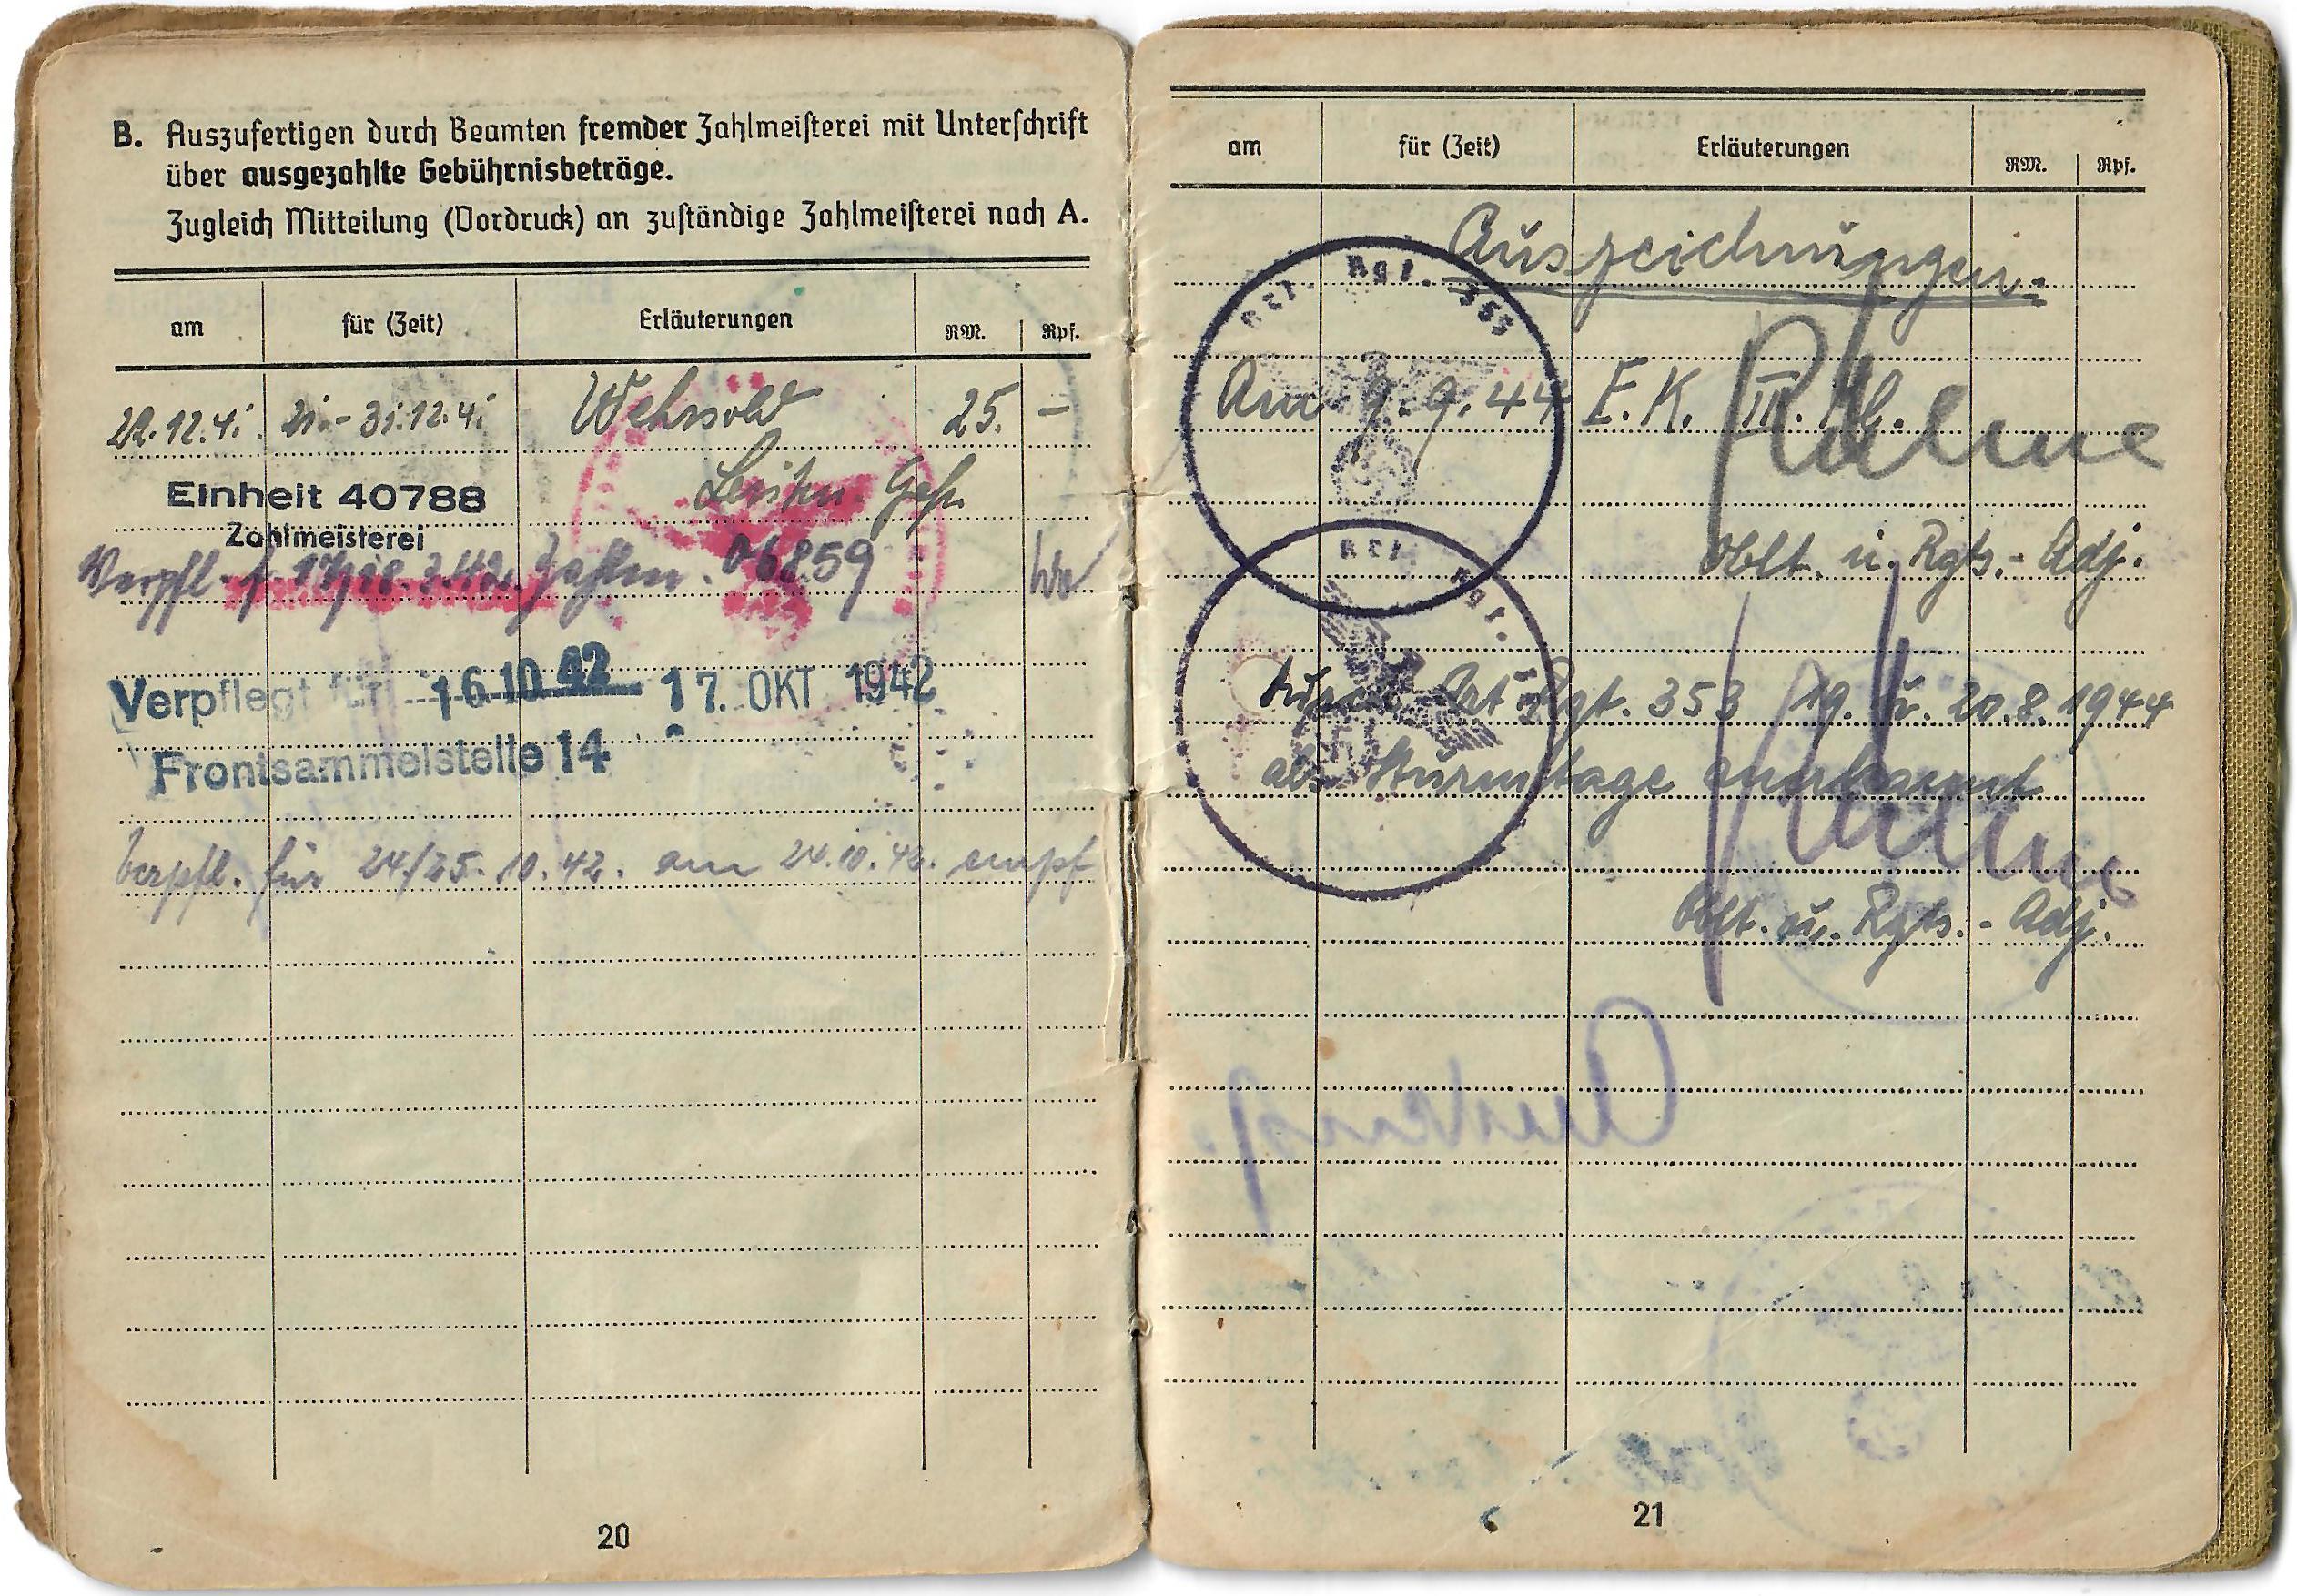 B. Auszufertigen durch Beamten fremder Zahlmeisterei mit Unterschrift
über ausgezahlte Gebührnisbeträge.
Zugleich Mitteilung (Vordruck) an zuständige Zahlmeisterei nach A.
am für (Zeit) Erläuterungen RM. Rpf.
22.12.41. 21.-31.12.41 Wehrsold 25. –
Einheit 40788
Zahlmeisterei
Verpfl. f. 17/18.3.42. 06859
Verpflegt für 16 10 42 17. OKT 1942
Frontsammelstelle 14
Verpfl. für 24/25.10.42. am 24.10.42. empf
20
am für (Zeit) Erläuterungen RM. Rpf.
Auszeichnungen.
Rgt. 353
Am 9.9.44 E.K. II. Kl.
Oblt. u. Rgts.-Adj.
Rgt.
Durch Rgt. 353 19. u. 20.8.1944
als Sturmtage anerkannt
Oblt. u. Rgts.-Adj.
21